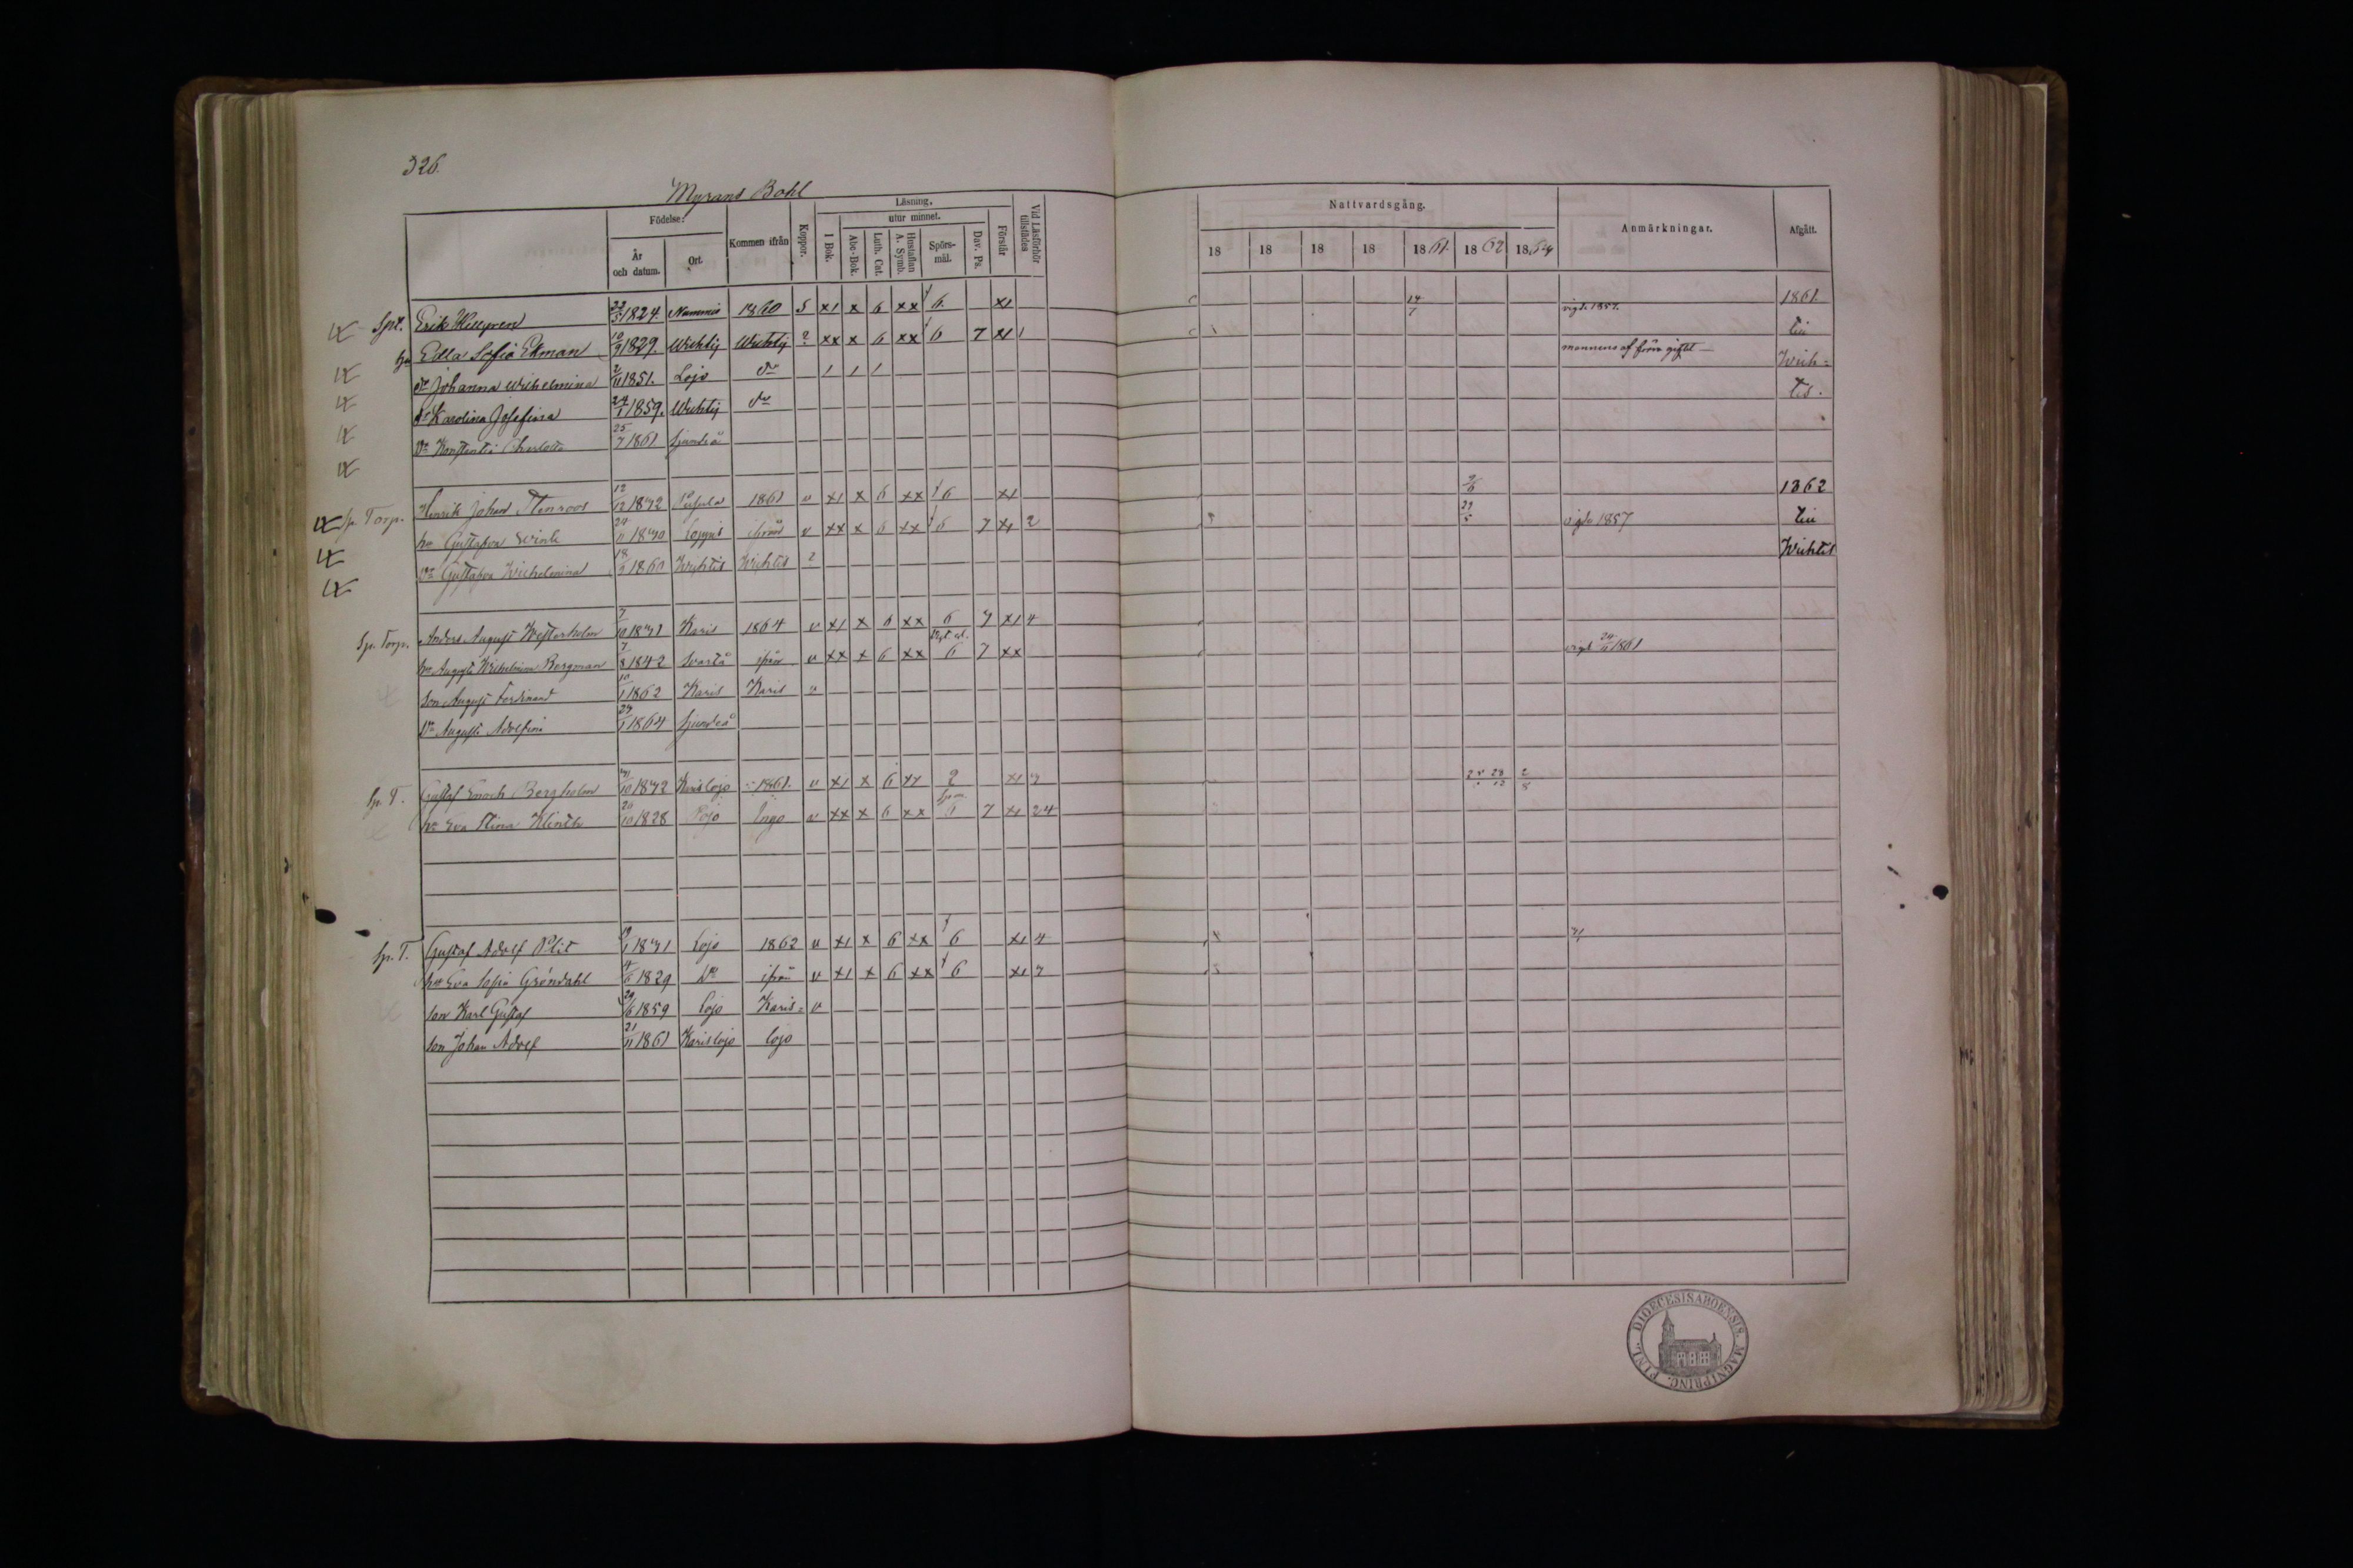 326.
Myrans Bohl
Födelse: Kommen ifrån Koppor. Läsning. Vid Läsförhör tillstädes Nattvardsgång. Anmärkningar. Afgått.
År och datum. Ort. I Bok. utur minnet. Förstår
Abc-Bok. Luth. Cat. Hustaflan A. Symb. Spörs-mål. Dav. Ps. 18 18 18 18 1861. 1862 18
Erik 1824 Nummis 1860 5 x1 x 6 xx 6. x1 vigde 1857. 1861.
hu Edla Sofia Ekman 12/9 1829. Wichtij Wichtij 2 xx x 6 xx 6 7 x1 1 mannens af förra giftet — till
dr Johanna Wilhelmina 2/11 1851. Lojo do 1 1 1 Wich=
dr Karolina Josefina 24/1 1859. Wichtij do tis.
Dr Charlotta 25/7 1861 Sjundeå
Sp. Torp. Henrik Johan Stenroos 12/12 1832 1861 u x1 x 6 xx 6 x1 1862
hu Gustafva 24/11 1830 Loppis ifrån u xx x 6 xx 6 7 x1 2 29/5 vigde 1857 till
Dr Gustafva Wilhelmina 18/2 1860 Wichtis Wichtis 2 Wichtis
Sp. Torp. Anders August Westerholm 7/10 1831 Karis 1864 u x1 x 6 xx 6 7 x1 4
hu Augusta Wilhelmina Bergman 7/8 1842 Svartå ifrån u xx x 6 xx 6 7 xx vigde 24/11 1861
Son August Ferdinand 10/1 1862 Karis Karis u
Dr Augusta Adolfina 29/1 1864 Sjundeå
Sp. T. Gustaf Enoch Bergholm 10 1832 Karislojo 1861. u x1 x 6 2 x1 2/8
hu Eva Stina 20/10 1828 Pojo Ingo u xx x 6 xx 6 7 x1 24
Sp. T. Gustaf Adolf 1831 Lojo 1862 u x1 x 6 xx 6 x1 4
hu Eva Sofia Gröndahl 1829 Do ifrån u x1 x 6 xx 6 x1
Son Karl Gustaf 29/6 1859 Lojo Karis= u
Son Johan Adolf 21/11 1861 Karislojo lojo
FINL. DIOECESIS ABOENSIS. MAGNI PRINC.